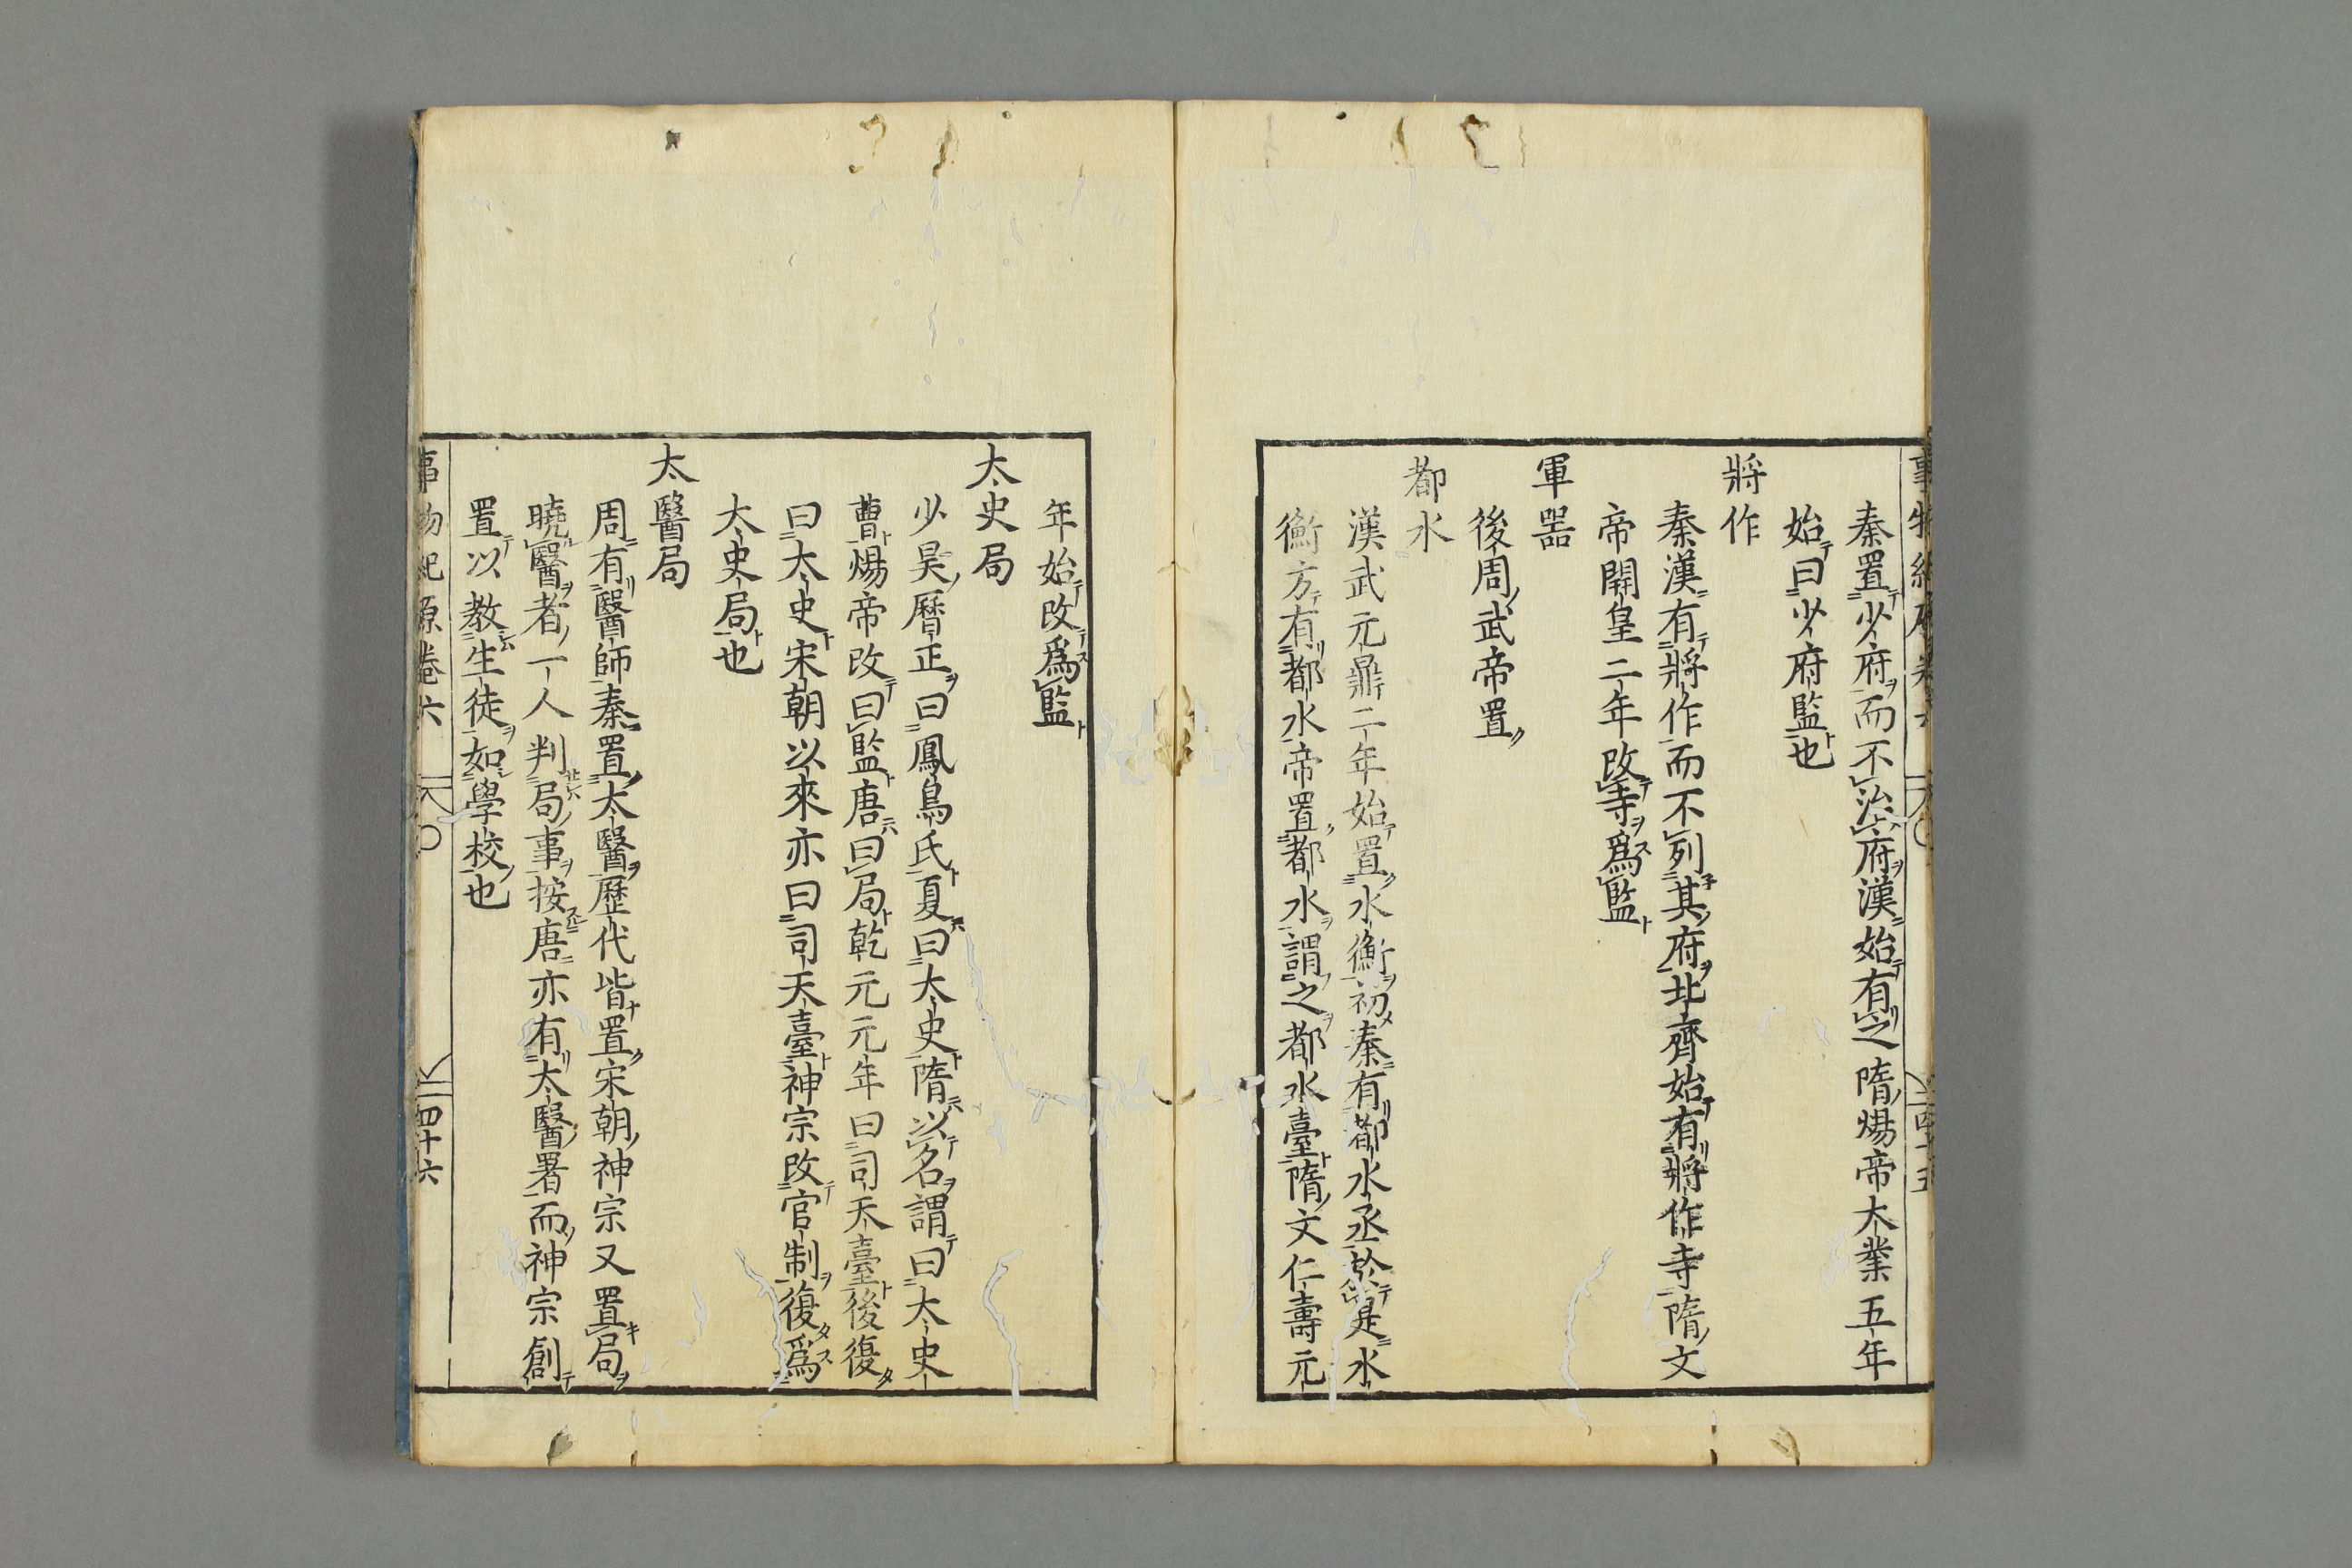 秦置少府而不治府漢始有之隋煬帝大業五年
始曰少府監也
將作
秦漢有將作而不列其府北齊始有將作寺隋文
帝開皇二年改寺爲監
軍噐
後周武帝置
都水
漢武元鼎二年始置水衡初秦有都水丞於是水
衡方有都水帝置都水謂之都水臺隋文仁壽元
年始改爲監
太史局
少昊曆正曰鳳鳥氏夏曰太史隋以名謂曰太史
曹煬帝改曰監唐曰局乾元元年曰司天臺後復
曰太史宋朝以來亦曰司天臺神宗改官制復爲
太史局也
太醫局
周有醫師秦置太醫歷代皆置宋朝神宗又置局
曉醫者一人判局事按唐亦有太醫署而神宗創
置以教生徒如學校也
事物紀原卷六 四十六